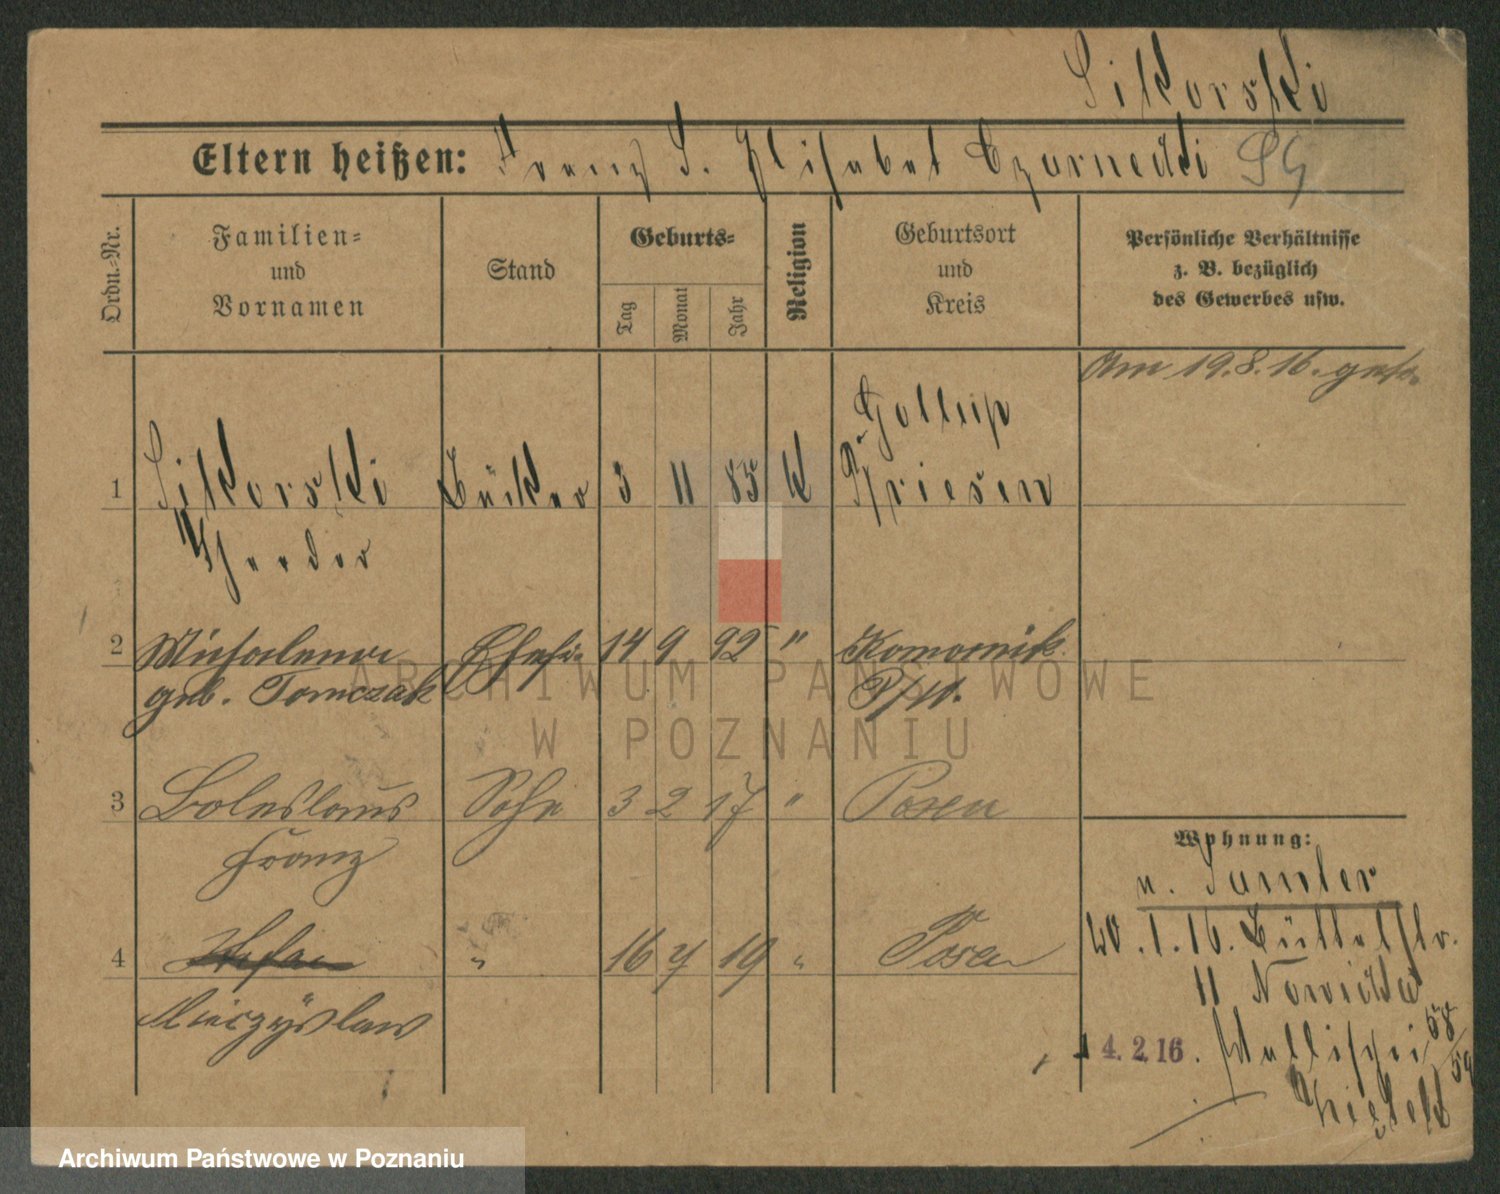 Sikorski
Eltern heißen: Franz S. Elisabet Czarnecki SG
Ordn.-Nr.
Familien-
und
Vornamen
Stand
Geburts-
Tag
Monat
Jahr
Religion
Geburtsort
und
Kreis
Persönliche Verhältnisse
z. B. bezüglich
des Gewerbes usw.
Am 19.8.16.
Gollup
1 Sikorski Bäcker 3 11 85 K Briesen
2 Michalena Ehefr. 14 9 92 " Komornik
geb. Tomczak P/W.
3 Boleslaus Sohn 3 2 17 " Posen
Franz
4 Stefan " 16 7 19 " Posen
Mieczyslaw
Wohnung:
v. Samter
20.1.16. Büttelstr.
11 Nowicka
4.2.16. Wallischei 58/59
ARCHIWUM PAŃSTWOWE
W POZNANIU
Archiwum Państwowe w Poznaniu